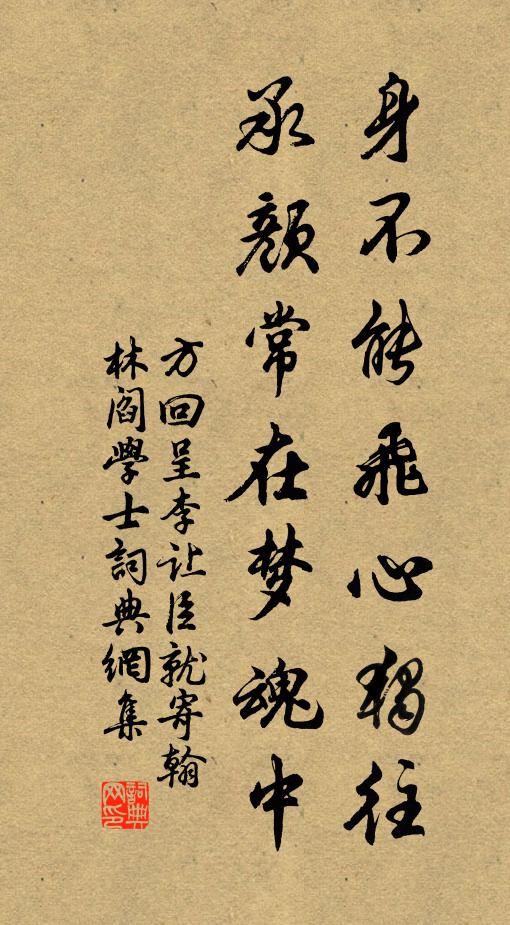 身不能飛心獨往
承顏常在梦魂中
方回呈李让臣就寄翰
林阎學士詞典網集
詞典网印